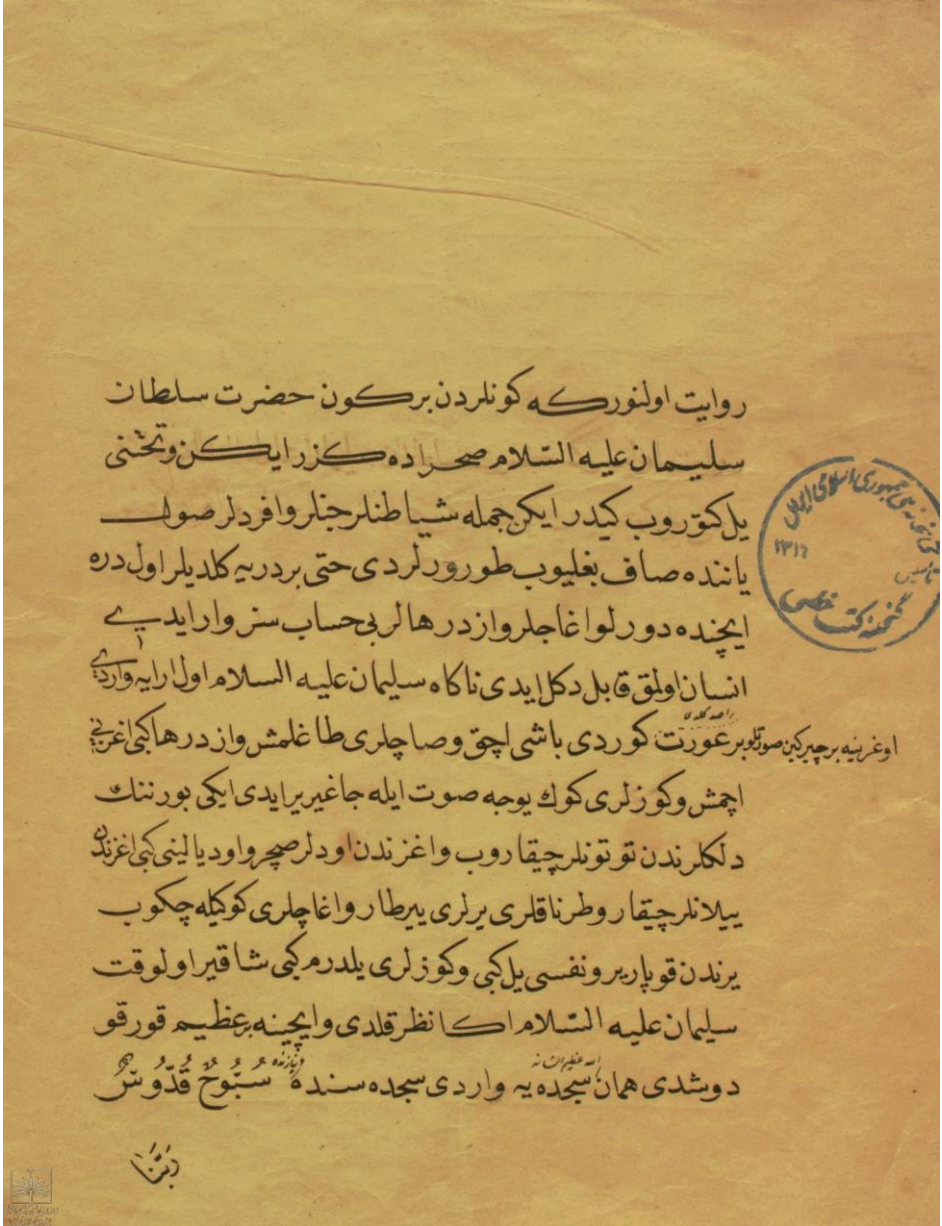 روايت اولنوركه كونلردن بركون حضرت سلطان
سليمان عليه السّلام صحراده كزر ايكن و تختنى
يل كتوروب كيدر ايكن جمله شياطنلر جنلر وافردلر صول
ياننده صاف بغليوب طورورلردى حتى بر دريه كلديلر اول دره
ايچنده دورلو اغاجلر واز درهالر بى حساب سز وار ايدى
انسان اولق قابل دكل ايدى ناكاه سليمان عليه السلام اول ارايه واردى
اوغرينه بر چيركين صورتلو بر عورت كوردى باشى اچق و صاچلرى طاغلمش واز درها كبى اغزنى
اچمش و كوزلرى كوك يوجه صوت ايله جاغيريرايدى ايكى بورننك
دلكلرندن توتونلر چيقاروب واغزندن اودلر صچر واوديالينى كبى اغزندن
ييلانلر چيقار وطرناقلرى يرلرى ييرطار واغاچلرى كوكيله چكوب
يرندن قوپارير ونفسى يل كبى وكوزلرى يلدرم كبى شاقير اولوقت
سليمان عليه السّلام اكا نظر قلدى وايچينه بر عظيم قورقو
دوشدى همان سجده يه واردى سجده سنده سُبُّوحٌ قُدُّوسٌ
ربّنا
كتابخانه مجلس جمهورى اسلامى ايران
١٣١٢
گنجينه كتب خطى